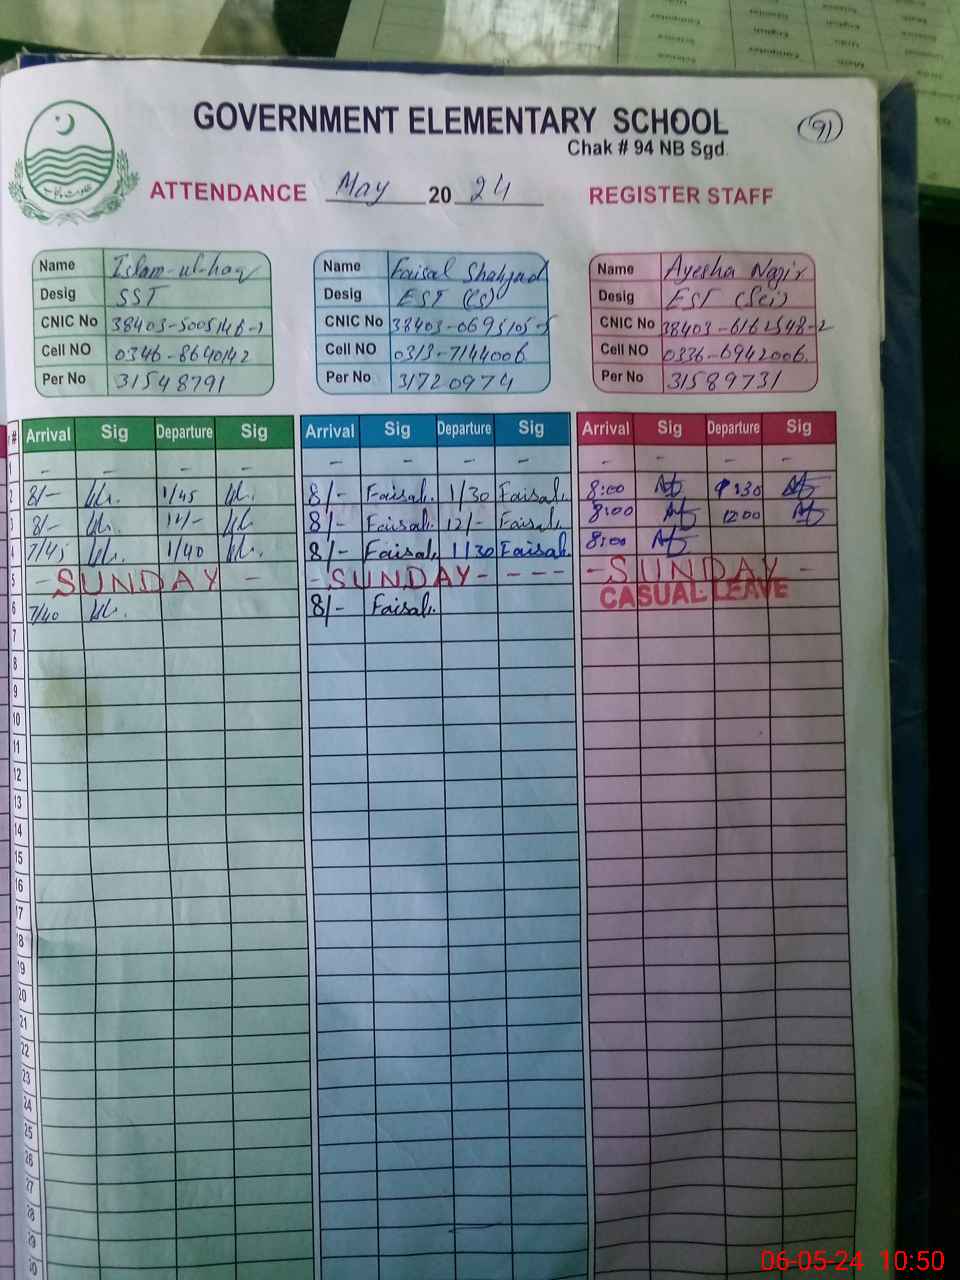 GOVERNMENT ELEMENTARY SCHOOL
91
Chak # 94 NB Sgd.
ATTENDANCE May 2024 REGISTER STAFF
Name Islam-ul-haq Name Faisal Shahzad Name Ayesha Nazir
Desig SST Desig EST (CS) Desig EST (Sci)
CNIC No 38403-5005146-1 CNIC No 38403-0695105-5 CNIC No 38403-6162548-2
Cell NO 0346-8640142 Cell NO 0313-7144006 Cell NO 0336-6942006
Per No 31548791 Per No 31720974 Per No 31589731
Arrival Sig Departure Sig Arrival Sig Departure Sig Arrival Sig Departure Sig
1 - - - - - - - - - - - -
2 8/- 1/45 8/- Faisal. 1/30 Faisal. 8:00 130
3 8/- 8/- Faisal. 12/- Faisal. 8:00 1200
4 7/45 1/40 8/- Faisal. 1/30 Faisal. 8:00
5 - SUNDAY - - SUNDAY - - - - - SUNDAY -
6 7/40 8/- Faisal. CASUAL LEAVE
7
8
9
10
11
12
13
14
15
16
17
18
19
20
21
22
23
24
25
26
27
28
29
30
06-05-24 10:50